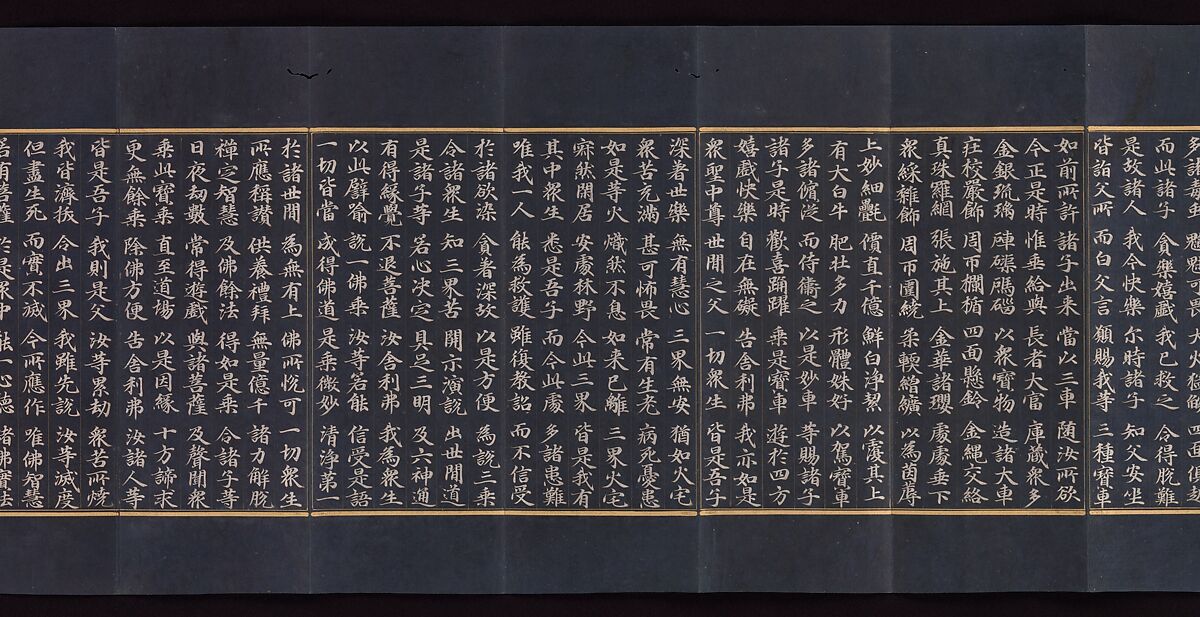 多諸毒虫 魑魅可畏 大火猛焰 四面俱起
而此諸子 貪樂嬉戲 我已救之 令得脫難
是故諸人 我今快樂 尒時諸子 知父安坐
皆詣父所 而白父言 願賜我等 三種寶車
如前所許 諸子出來 當以三車 随汝所欲
今正是時 惟垂給與 長者大富 庫藏衆多
金銀琉璃 硨磲碼碯 以衆寶物 造諸大車
莊校嚴飾 周帀欄楯 四面懸鈴 金繩交絡
真珠羅網 張施其上 金華諸瓔 處處垂下
衆綵雜飾 周帀圍繞 柔輭繒纊 以為茵蓐
上妙細㲲 價直千億 鮮白淨潔 以覆其上
有大白牛 肥壯多力 形體姝好 以駕寶車
多諸儐從 而侍衛之 以是妙車 等賜諸子
諸子是時 歡喜踊躍 乘是寶車 遊於四方
嬉戲快樂 自在無礙 告舍利弗 我亦如是
衆聖中尊 世間之父 一切衆生 皆是吾子
深著世樂 無有慧心 三界無安 猶如火宅
衆苦充滿 甚可怖畏 常有生老 病死憂患
如是等火 熾然不息 如來已離 三界火宅
寂然閑居 安處林野 今此三界 皆是我有
其中衆生 悉是吾子 而今此處 多諸患難
唯我一人 能為救護 雖復教詔 而不信受
於諸欲染 貪著深故 以是方便 為說三乘
令諸衆生 知三界苦 開示演說 出世間道
是諸子等 若心決定 具足三明 及六神通
有得緣覺 不退菩薩 汝舍利弗 我為衆生
以此譬喻 說一佛乘 汝等若能 信受是語
一切皆當 成得佛道 是乘微妙 清淨第一
於諸世間 為無有上 佛所悅可 一切衆生
所應稱讚 供養禮拜 無量億千 諸力解脫
禪定智慧 及佛餘法 得如是乘 令諸子等
日夜劫數 常得遊戲 與諸菩薩 及聲聞衆
乘此寶乘 直至道場 以是因緣 十方諦求
更無餘乘 除佛方便 告舍利弗 汝諸人等
皆是吾子 我則是父 汝等累劫 衆苦所燒
我皆濟拔 令出三界 我雖先說 汝等滅度
但盡生死 而實不滅 今所應作 唯佛智慧
若有菩薩 於是衆中 能一心聽 諸佛實法